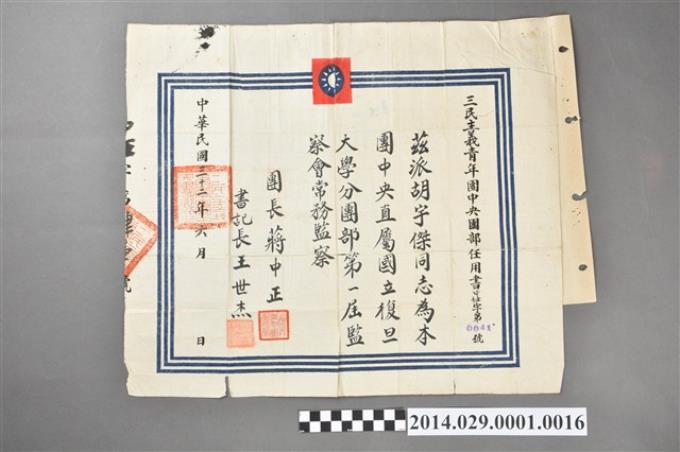 三民主義青年團中央團部任用書
號
茲派胡宇傑同志為本
團中央直屬國立復旦
大學分團部第一屆監
察會常務監察
團長蔣中正
書記長王世杰
中華民國三十二年六月 日
2014.029.0001.0016